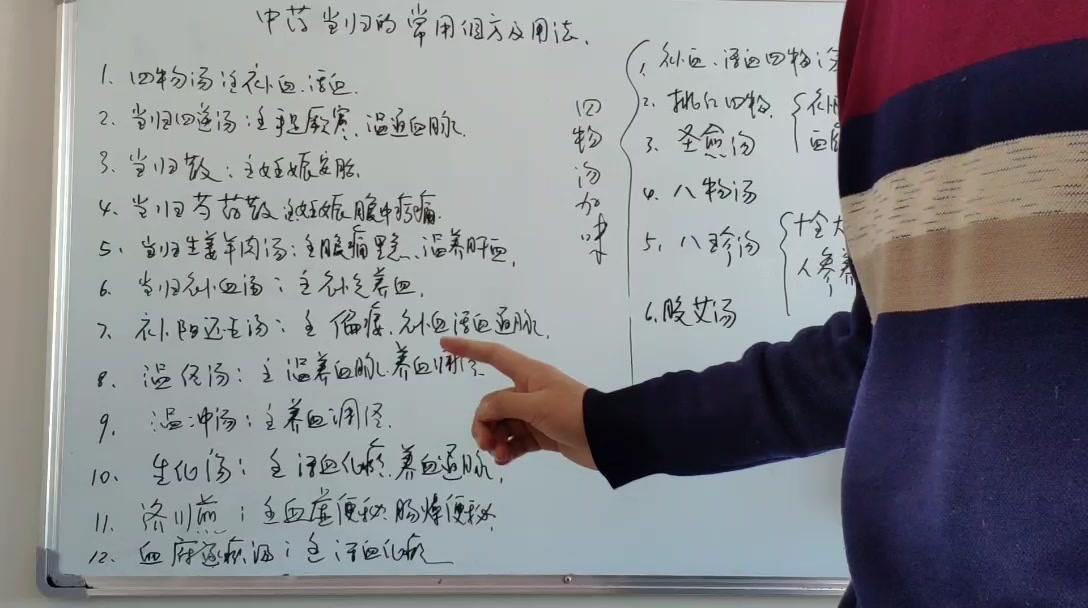 中药当归的常用组方及用法.
1. 四物汤:主补血.活血.
2. 当归四逆汤:主手足厥寒、温通血脉.
3. 当归散:主妊娠安胎.
4. 当归芍药散:主妊娠腹中疼痛.
5. 当归生姜羊肉汤:主腹痛里急、温养肝血.
6. 当归补血汤:主补气养血.
7. 补阳还五汤:主偏痿.补血活血通脉.
8. 温经汤:主温养血脉.养血调经
9. 温冲汤:主养血调经.
10. 生化汤:主活血化瘀.养血通脉.
11. 济川煎:主血虚便秘.肠燥便秘.
12. 血府逐瘀汤:主活血化瘀
四物汤加味
1. 补血、活血四物汤
2. 桃红四物.
3. 圣愈汤
4. 八物汤
5. 八珍汤
十全大
人参养
6. 胶艾汤